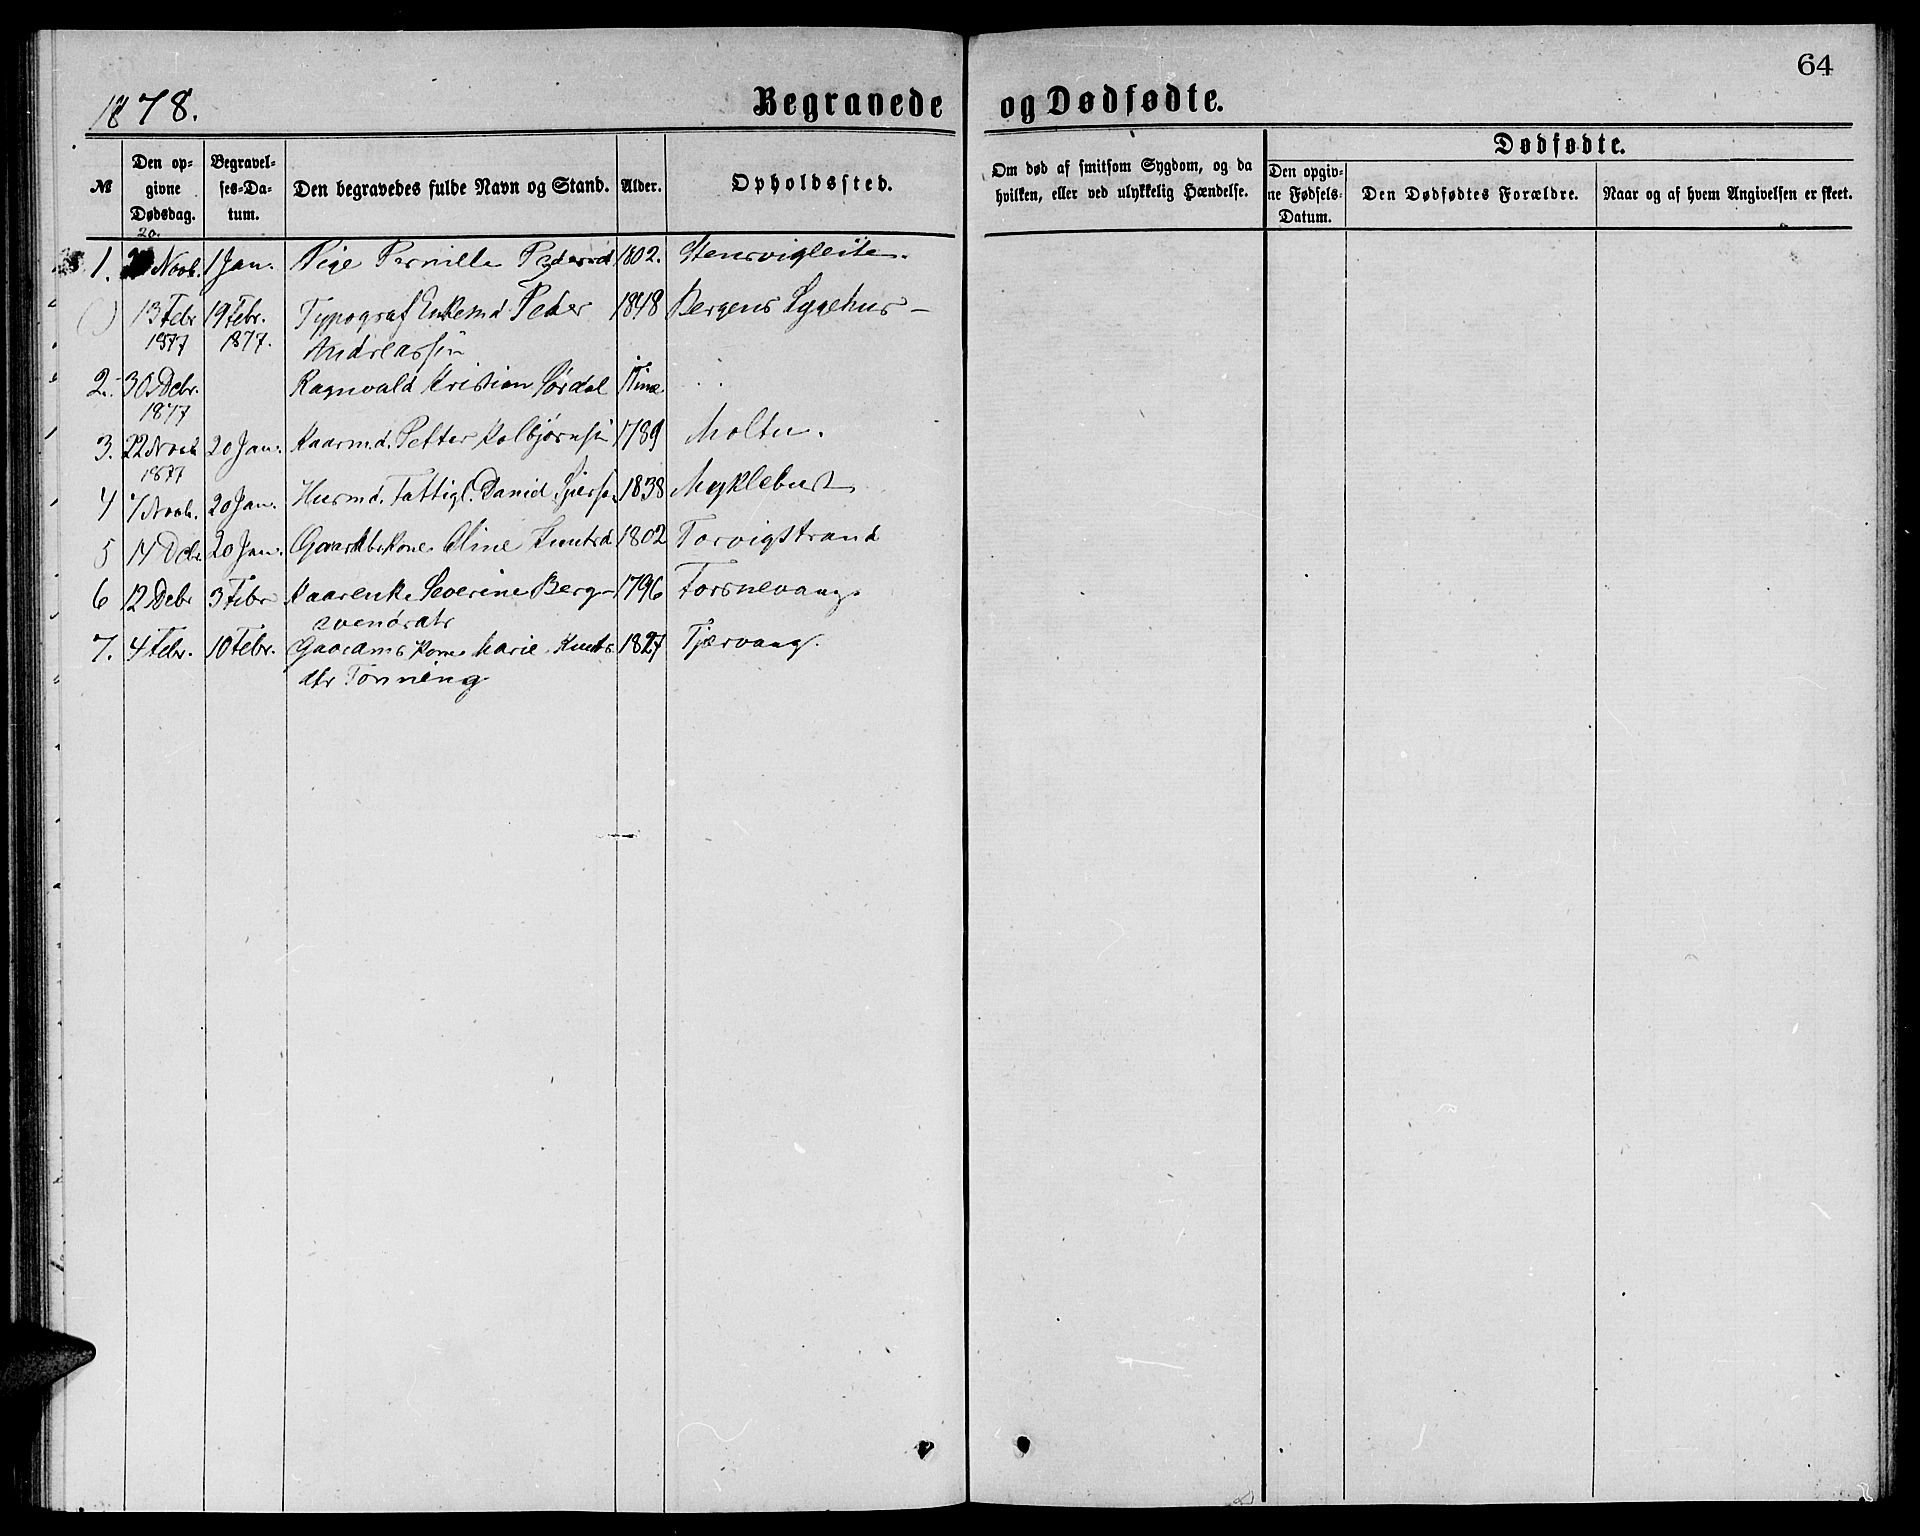 64
1878.
Begravede og Dødfødte.
№
Den op-
givne
Dødsdag.
Begravel-
ses-Da-
tum.
Den begravedes fulde Navn og Stand.
Alder.
Opholdssted.
Om død af smitsom Sygdom, og da
hvilken, eller ved ulykkelig Hændelse.
Dødfødte.
Den opgiv-
ne Fødsels-
Datum.
Den Dødfødtes Forældre.
Naar og af hvem Angivelsen er skeet.
20.
1. Novb. 1 Jan. Pige Pernille Pedersd 1802. Stensvigleite.
13 Febr 19 Febr. Typograf Enkemd. Peder 1848 Bergens Sygehus –
1877 1877. Andreassen
2. 30 Debr. Ragnvald Kristian Sørdal
1877
3. 22 Novb 20 Jan. Kaarmd. Petter Kolbjørnsen 1789 Moltu.
1877
4 7 Novb. 20 Jan. Husmd. Fattigl. David 1838 Myklebust
5 14 Debr. 20 Jan. Gaardbr Kone Oline Knutsd 1802 Torvigstrand
6 12 Debr 3 Febr Kaarenke Severine Berg- 1796 Torsnevaag
svendsdtr
7. 4 Febr. 10 Febr. Gaardms Kone Marie Knuts 1827 Tjørvaag.
dtr Tonning